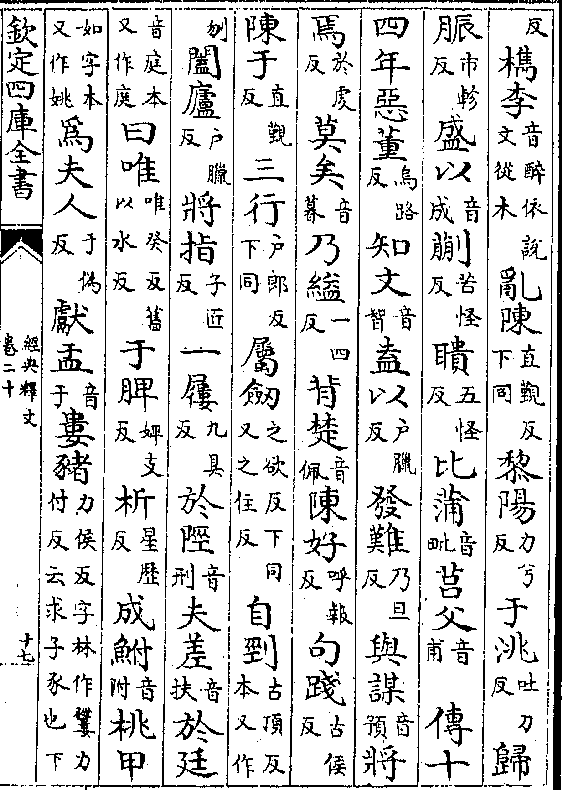 反檇李音醉依說文從木亂陳直覲反下同黎陽力兮反于洮吐刀反歸
脤市軫反盛以音成蒯苦怪反聵五怪反比蒲音毗莒父音甫傳十
四年惡董烏路反知文音智盍以戶臘反發難乃旦反與謀音預將
焉於虔反莫矣音暮乃縊一四反背楚音佩陳好呼報反句踐古侯反
陳于直覲反三行戶郎反下同屬劒之欲反下同又之住反自剄古頂反本又作
刎闔廬戶臘反將指子匠反一屨九具反於陘音刑夫差音扶於廷
音庭本又作庭曰唯唯癸反舊以水反于脾婢支反析星歷反成鮒音附桃甲
如字本又作姚爲夫人于偽反獻盂音于婁豬力侯反字林作力付反云求子豕也下
欽定四庫全書
經典釋文
卷二十
十七